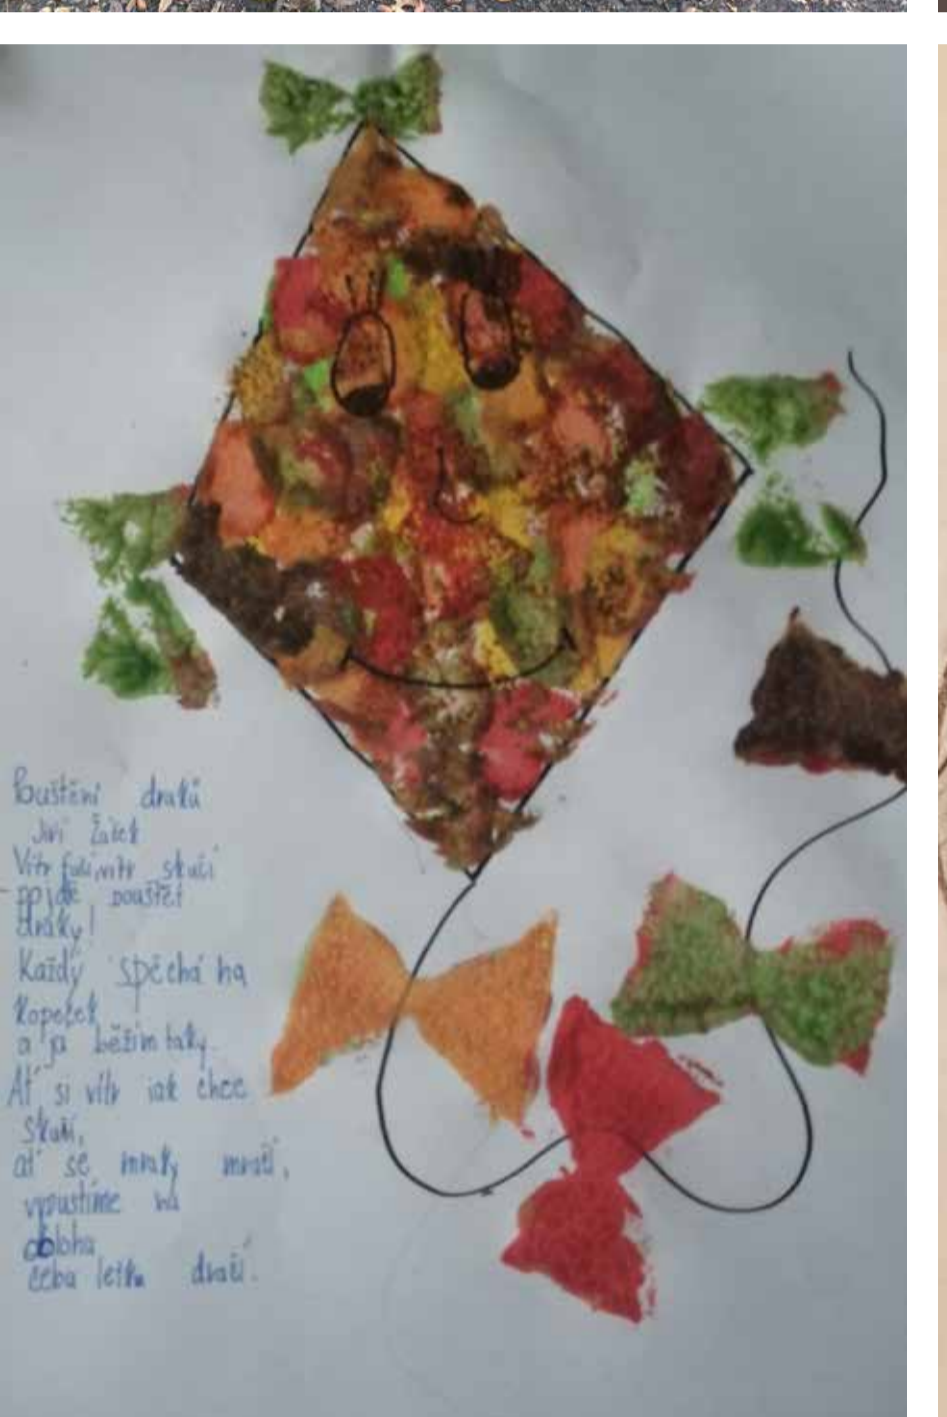 Pouštění draků
Jiří Žáček
Vítr fučí vítr skučí
pojďte pouštět
draky!
Každý spěchá na
kopeček
a já běžím taky.
Ať si vítr jak chce
skučí,
ať se mraky mračí,
vypustíme na
obloha
četa dračí.